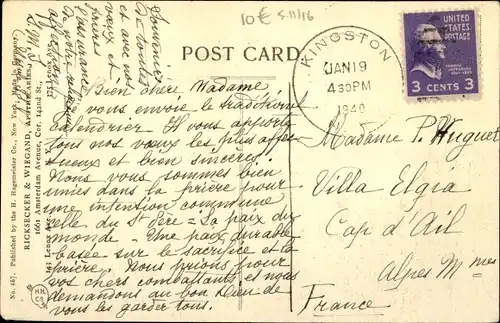 10€ S.11/16
POST CARD
KINGSTON
JAN 19
4 30 PM
1940
UNITED STATES POSTAGE
THOMAS JEFFERSON
3 CENTS 3
Bien chère Madame,
vous envoie le traditionnel
Calendrier. Il vous apporte
tous nos vœux les plus affec-
tueux et bien sincères.
Nous vous sommes bien
unies dans la prière pour
une intention commune
celle du St Père = La paix du
monde - Une paix durable
basée sur le sacrifice et la
prière. Nous prions pour
vos chers combattants et nous
demandons au bon Dieu de
vous les garder tous.
Souvenirs
à toutes
et avec nos
vœux et
prières
l'assurance
de notre
Madame P. Huguet
Villa Elgia
Cap d'Ail
Alpes Mmes
France
No. 467. Published by the H. Hagemeister Co., New York. Made in Germany
RICKSECKER & WIEGAND, APOTHECARIES
1661 Amsterdam Avenue, Cor. 142nd St.
Lenox Ave.
H.H.
Co.